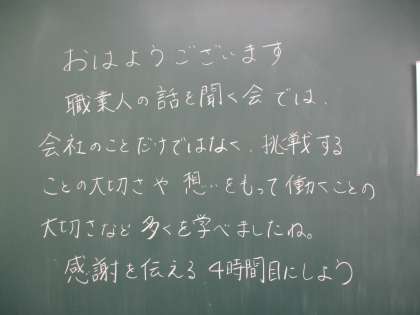 おはようございます
職業人の話を聞く会では、
会社のことだけではなく、挑戦する
ことの大切さや 想…をもって働くことの
大切さなど 多くを学べましたね。
感謝を伝える 4時間目にしよう